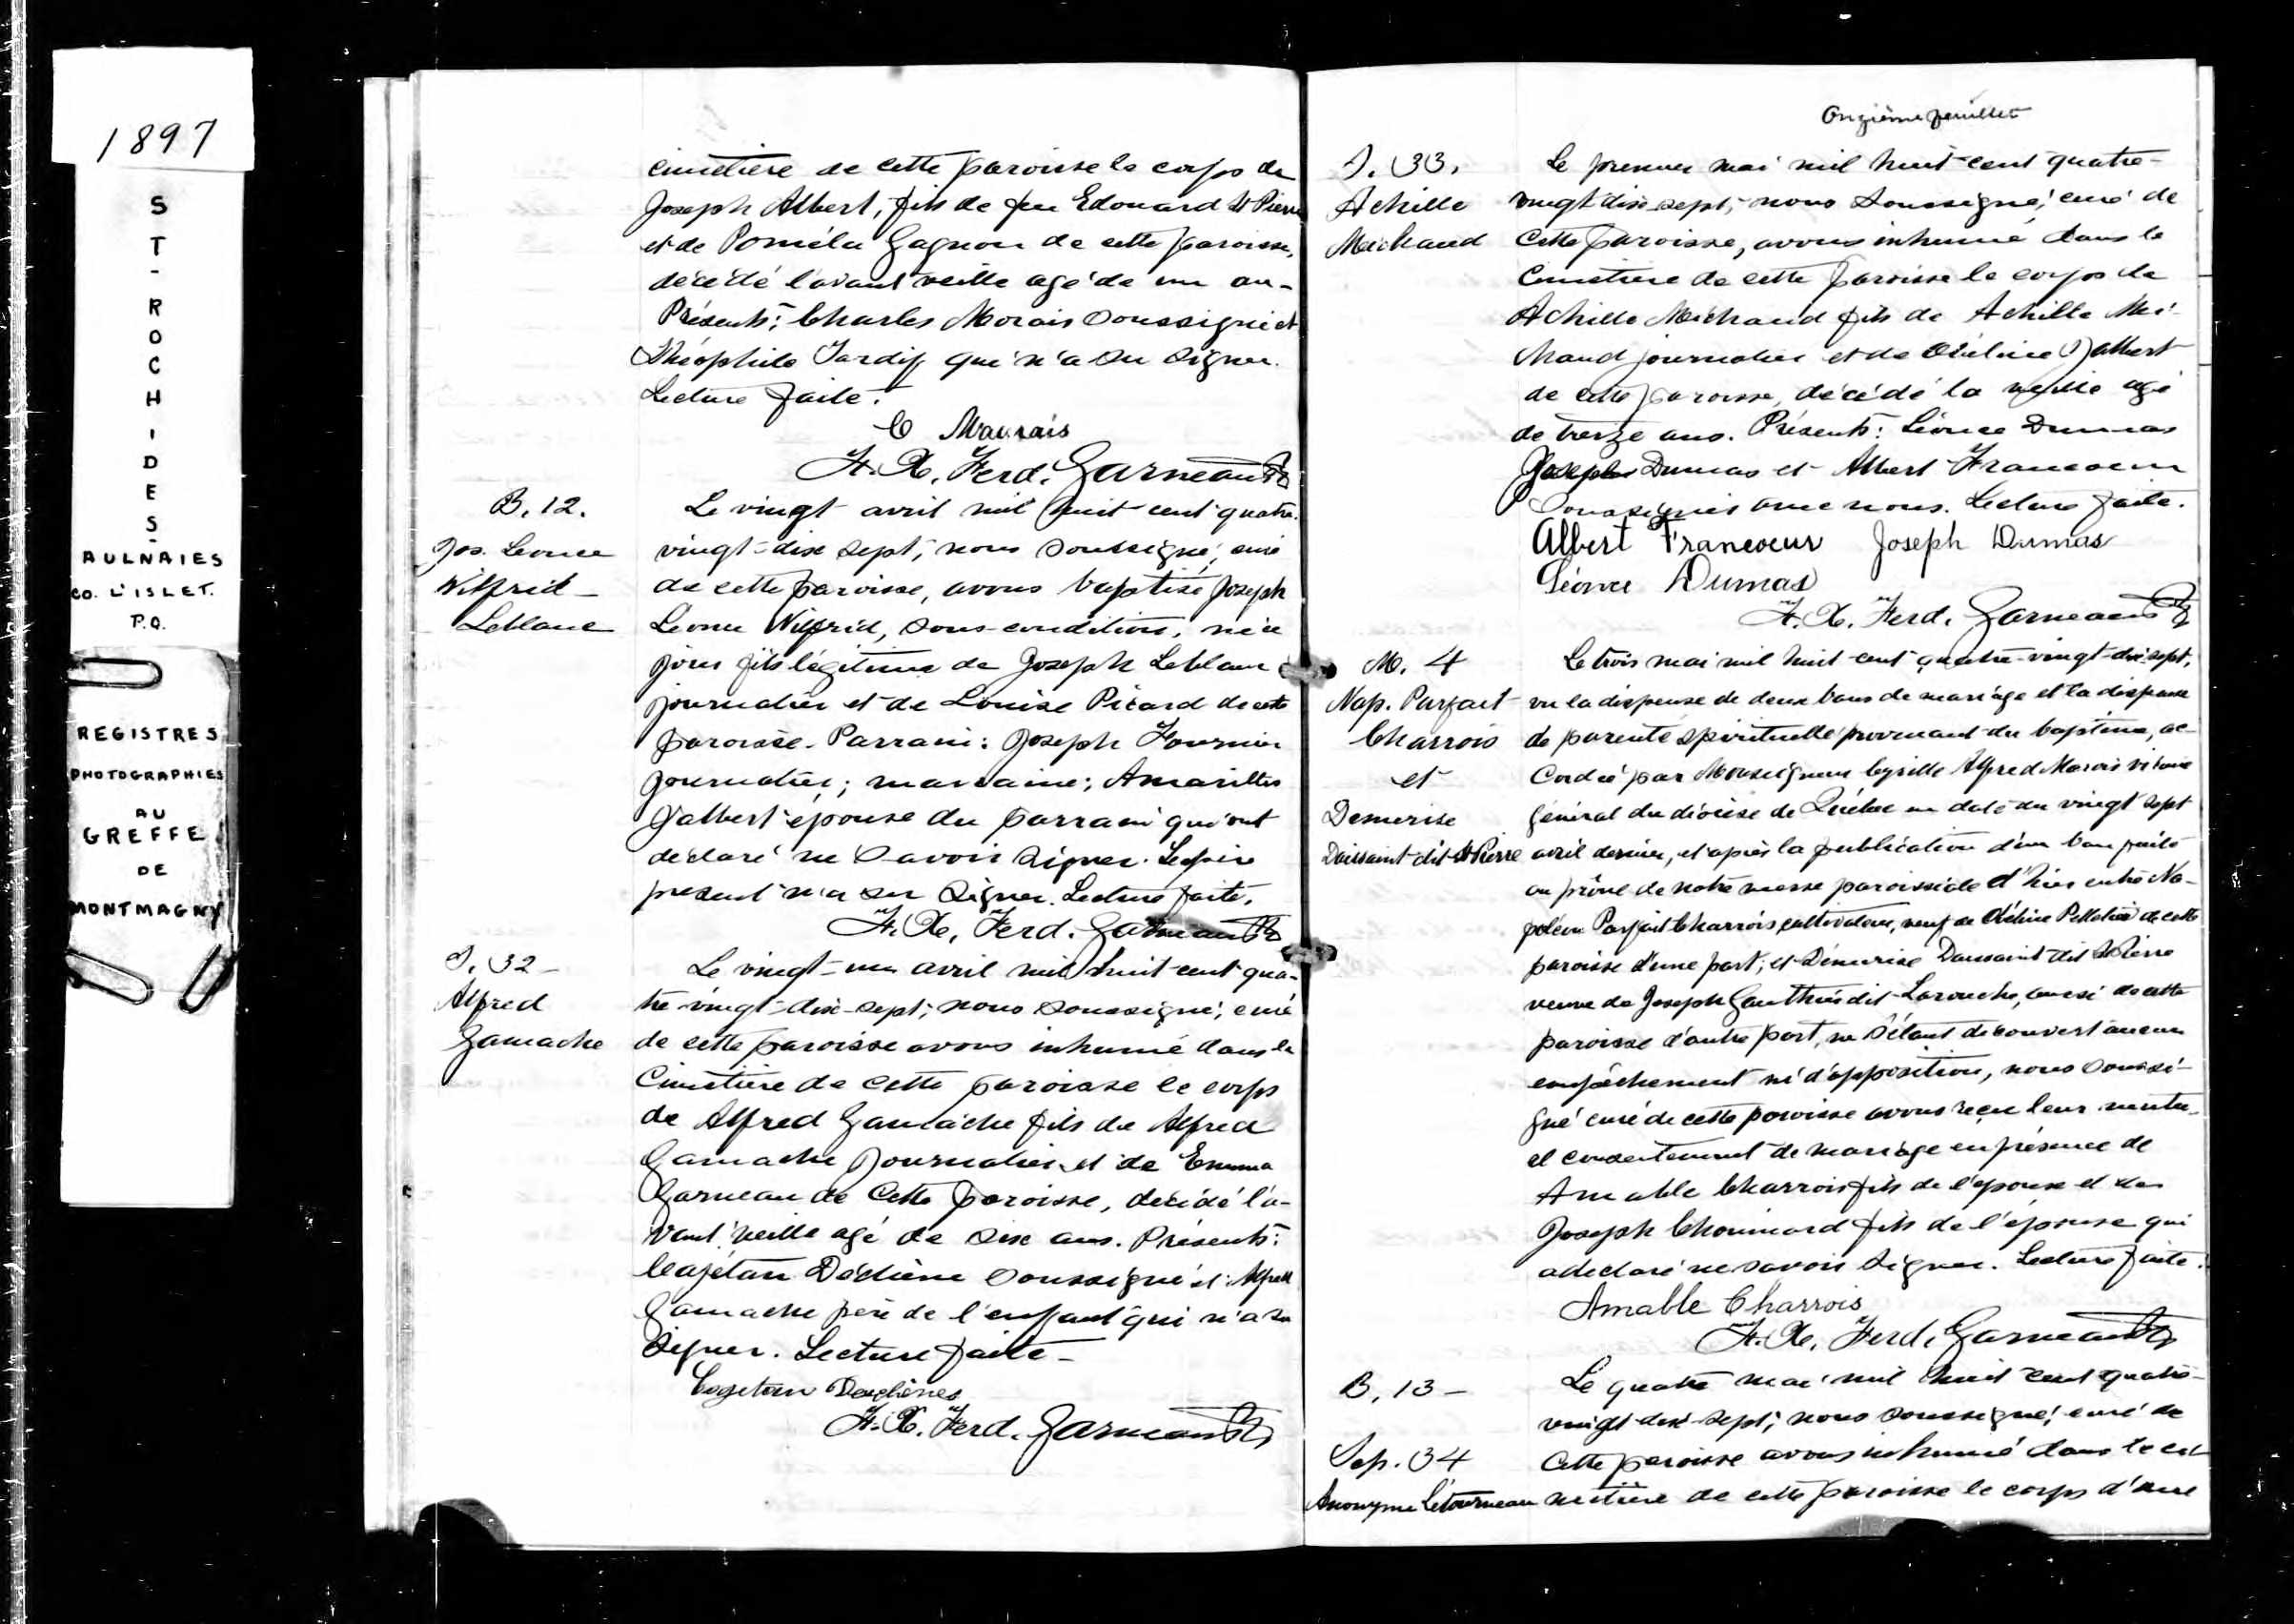 1897
ST-ROCH DES-
AULNAIES
CO. L'ISLET.
P.Q.
REGISTRES
PHOTOGRAPHIES
AU
GREFFE
DE
MONTMAGNY
cimetière de cette paroisse le corps de
Joseph Albert, fils de feu Edouard St Pierre
et de Poméla Gagnon de cette paroisse,
décédé l'avant veille agé de un an-
Présents: Charles Morais soussigné et
Théophile Tardif qui n'a su signer.
Lecture faite.
C Maurais
F. X. Ferd. Garneau Ptre
B. 12.
Jos. Leonce
Wilfrid-
Leblanc
Le vingt avril mil huit cent quatre-
vingt-dix sept, nous soussigné, curé
de cette paroisse, avons baptisé Joseph
Leonce Wilfrid, sous-condition, né ce
jour fils légitime de Joseph Leblanc
journalier et de Louise Picard de cette
paroisse. Parrain: Joseph Fournier
journalier; marraine: Amarilles
Jalbert épouse du parrain qui ont
déclaré ne savoir signer. Le père
present n'a su signer. Lecture faite.
F. X. Ferd. Garneau Ptre
S. 32-
Alfred
Gamache
Le vingt-un avril mil huit cent qua-
tre-vingt-dix-sept, nous soussigné, curé
de cette paroisse avons inhumé dans le
Cimetière de cette paroisse le corps
de Alfred Gamache fils de Alfred
Gamache journalier et de Emma
Garneau de cette paroisse, décédé l'a-
vant veille agé de six ans. Présents:
Cajétan Déchène soussigné et Alfred
Gamache père de l'enfant qui n'a su
signer. Lecture faite-
Cajetan Dechênes
F. X. Ferd. Garneau Ptre
Onzième feuillet
S. 33.
Achille
Michaud
Le premier mai mil huit cent quatre-
vingt-dix-sept, nous soussigné, curé de
cette paroisse, avons inhumé dans le
cimetière de cette paroisse le corps de
Achille Michaud fils de Achille Mi-
chaud journalier et de Jalbert
de cette paroisse, décédé la veille agé
de treize ans. Présents: Léonce Dumas
Joseph Dumas et Albert Francoeur
soussignés avec nous. Lecture faite.
Albert Francoeur Joseph Dumas
Léonce Dumas
F. X. Ferd. Garneau Ptre
M. 4
Nap. Parfait
Charrois
et
Demerise
Dussaint dit St Pierre
Le trois mai mil huit cent quatre-vingt-dix-sept,
vu la dispense de deux bans de mariage et la dispense
de parenté spirituelle provenant du baptême, ac-
cordée par Monseigneur Cyrille Alfred Marois vicaire
général du diocèse de Québec en date du vingt sept
avril dernier, et après la publication d'un ban faite
au prône de notre messe paroissiale d'hier entre Na-
poléon Parfait Charrois, cultivateur, veuf de Pelletier de cette
paroisse d'une part; et Démerise Dussaint dit St Pierre
veuve de Joseph Gauthier dit Larouche, aussi de cette
paroisse d'autre part, ne s'étant découvert aucun
empêchement ni d'opposition, nous soussi-
gné curé de cette paroisse avons reçu leur mutu-
el consentement de mariage en présence de
Amable Charrois fils de l'époux et de
Joseph Chouinard fils de l'épouse qui
a déclaré ne savoir signer. Lecture faite.
Amable Charrois
F. X. Ferd. Garneau Ptre
B. 13-
Sep. 34
Anonyme Létourneau
Le quatre mai mil huit cent quatre-
vingt-dix-sept; nous soussigné, curé de
cette paroisse avons inhumé dans le ci-
metière de cette paroisse le corps d'une